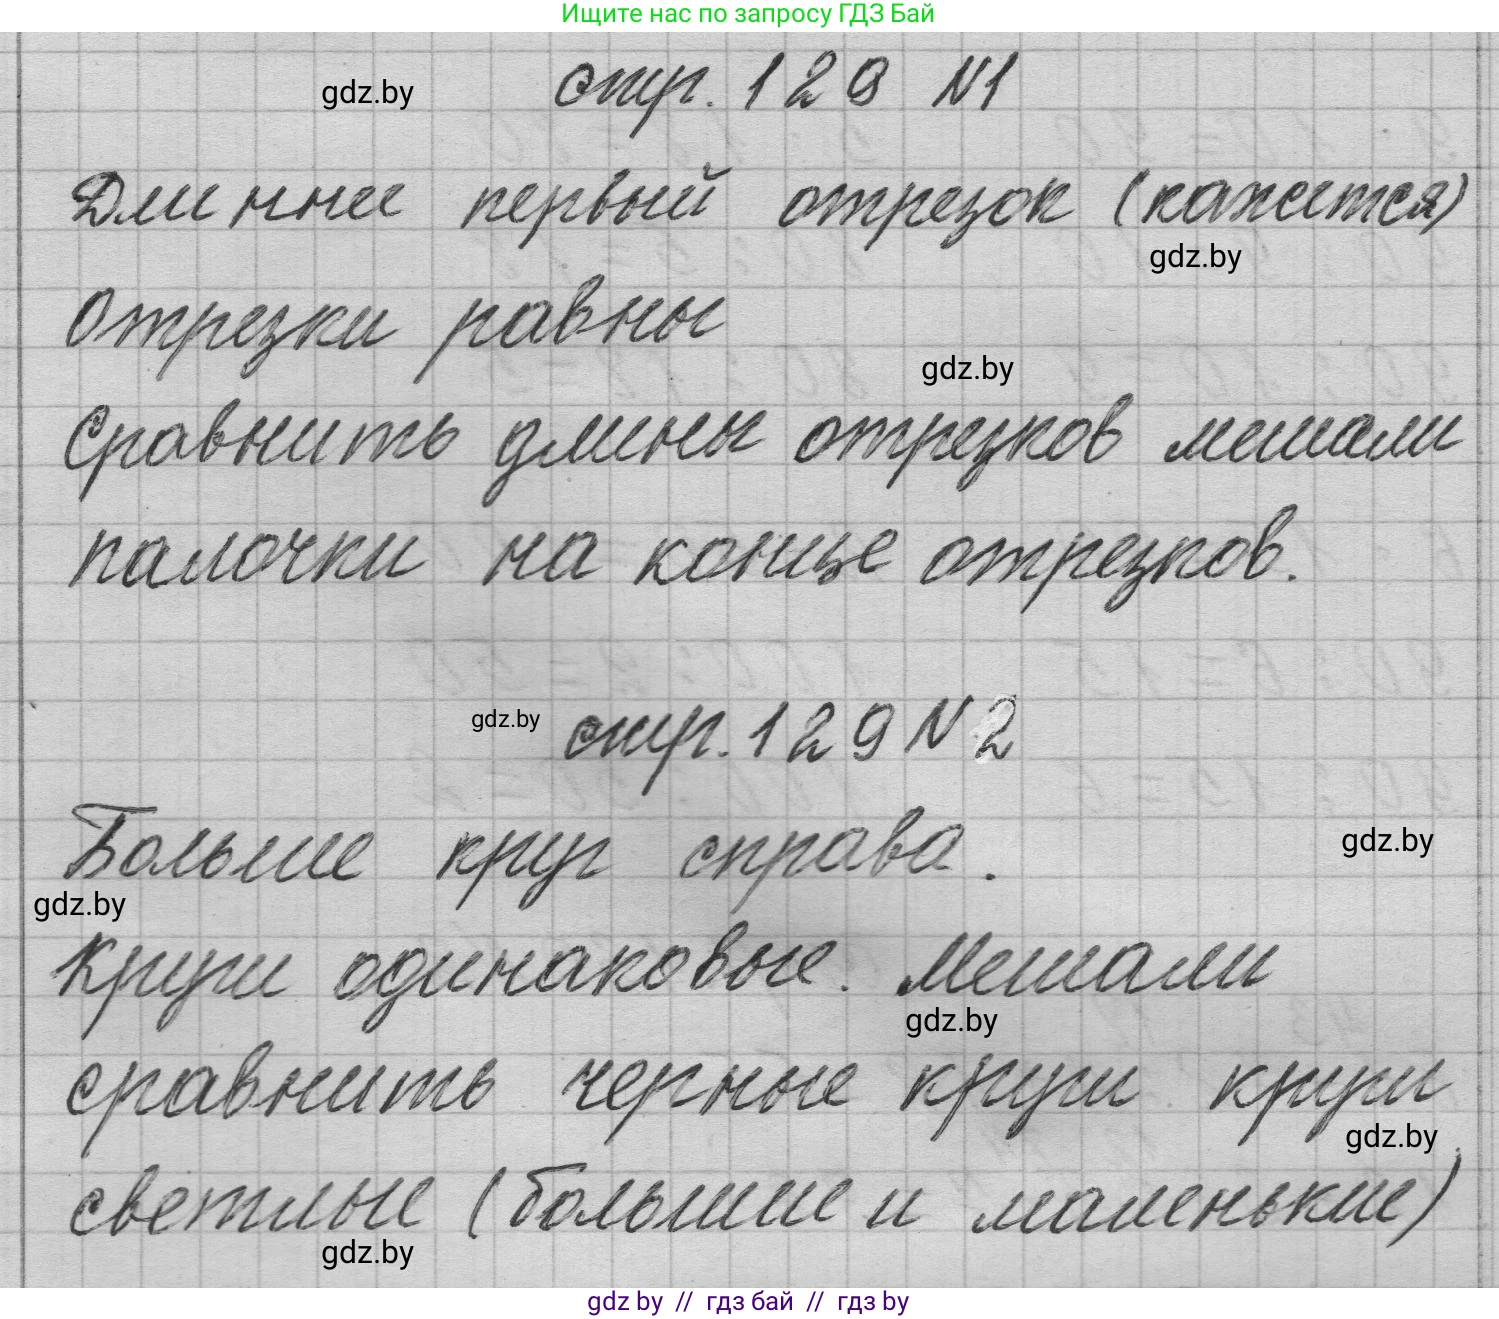 Ищите нас по запросу ГДЗ Бай
gdz.by
стр. 129 №1
Длиннее первый отрезок (кажется)
gdz.by
Отрезки равны
gdz.by
Сравнить длины отрезков мешали
палочки на конце отрезков.
gdz.by
стр. 129 №2
Больше круг справа.
gdz.by
gdz.by
Круги одинаковые. Мешали
gdz.by
сравнить черные круги круги
gdz.by
светлые (большие и маленькие)
gdz.by
gdz by // гдз бай // гдз by